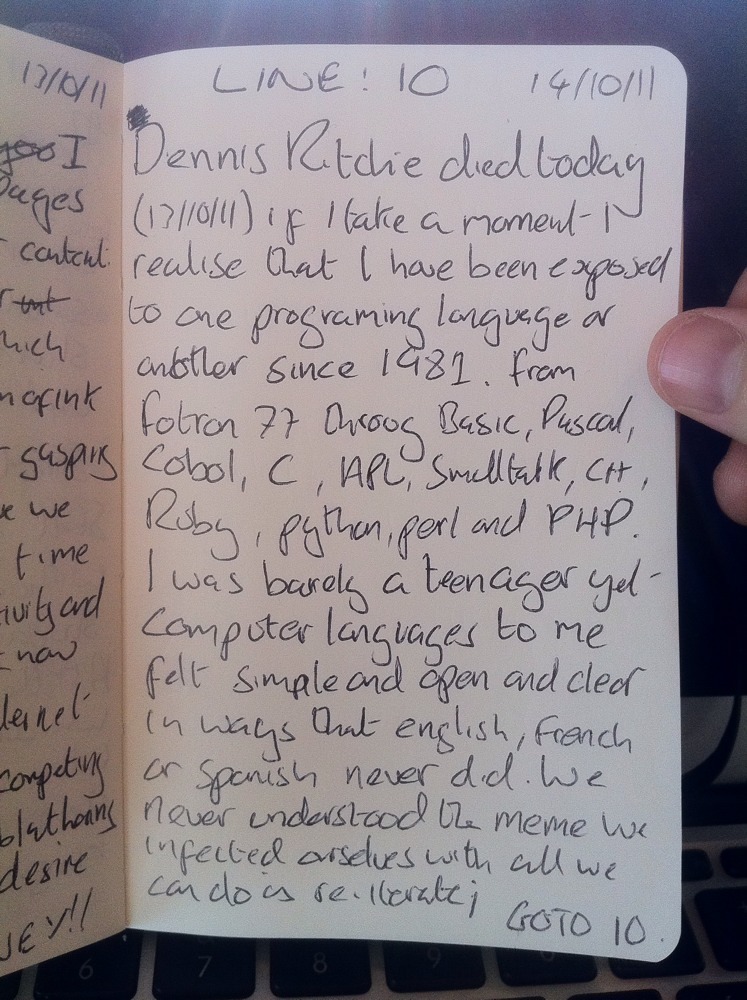 13/10/11
I
pages
content.
hich
n of ink
gasping
we
time
tivity and
now
competing
blathering
desire
LINE: 10 14/10/11
Dennis Ritchie died today
(13/10/11) if I take a moment I
realise that I have been exposed
to one programing language or
another since 1981. from
fotran 77 throog Basic, Pascal,
Cobol, C, APL, Smalltalk, C++,
Ruby, python, perl and PHP.
I was barely a teenager yet
Computer languages to me
felt simple and open and clear
in ways that english, french
or spanish never did. We
never understood the meme we
infected ourselves with all we
can do is re-iterate;
GOTO 10.
6 7 8 9